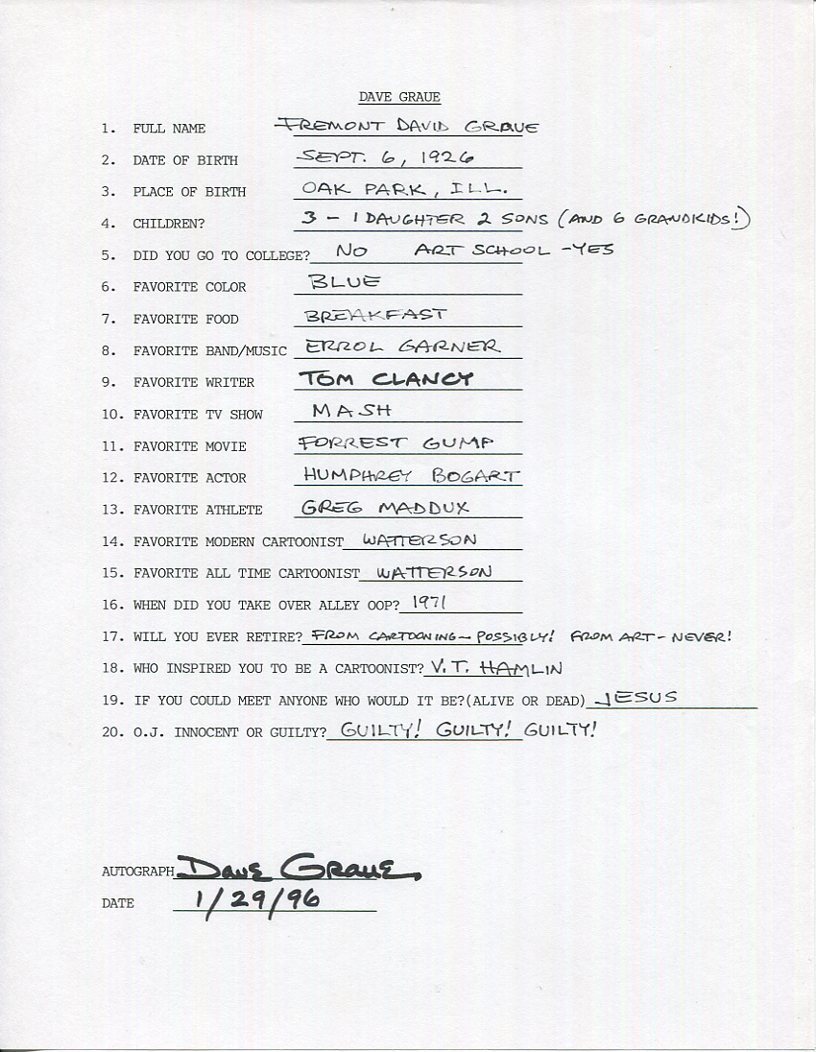 DAVE GRAUE
1. FULL NAME FREMONT DAVID GRAUE
2. DATE OF BIRTH SEPT. 6, 1926
3. PLACE OF BIRTH OAK PARK, ILL.
4. CHILDREN? 3 - 1 DAUGHTER 2 SONS (AND 6 GRANDKIDS!)
5. DID YOU GO TO COLLEGE? NO ART SCHOOL - YES
6. FAVORITE COLOR BLUE
7. FAVORITE FOOD BREAKFAST
8. FAVORITE BAND/MUSIC ERROL GARNER
9. FAVORITE WRITER TOM CLANCY
10. FAVORITE TV SHOW MASH
11. FAVORITE MOVIE FORREST GUMP
12. FAVORITE ACTOR HUMPHREY BOGART
13. FAVORITE ATHLETE GREG MADDUX
14. FAVORITE MODERN CARTOONIST WATTERSON
15. FAVORITE ALL TIME CARTOONIST WATTERSON
16. WHEN DID YOU TAKE OVER ALLEY OOP? 1971
17. WILL YOU EVER RETIRE? FROM CARTOONING - POSSIBLY! FROM ART - NEVER!
18. WHO INSPIRED YOU TO BE A CARTOONIST? V.T. HAMLIN
19. IF YOU COULD MEET ANYONE WHO WOULD IT BE?(ALIVE OR DEAD) JESUS
20. O.J. INNOCENT OR GUILTY? GUILTY! GUILTY! GUILTY!
AUTOGRAPH Dave Graue
DATE 1/29/96